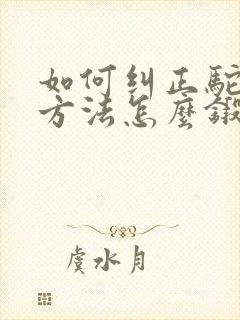 如何纠正駝
方法怎麼鍛
虞水月